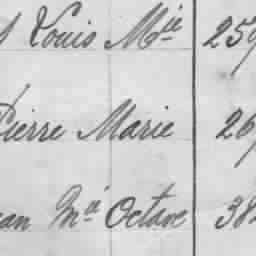 Louis Mie 259
Pierre Marie 26
Jean Ma Octave 38